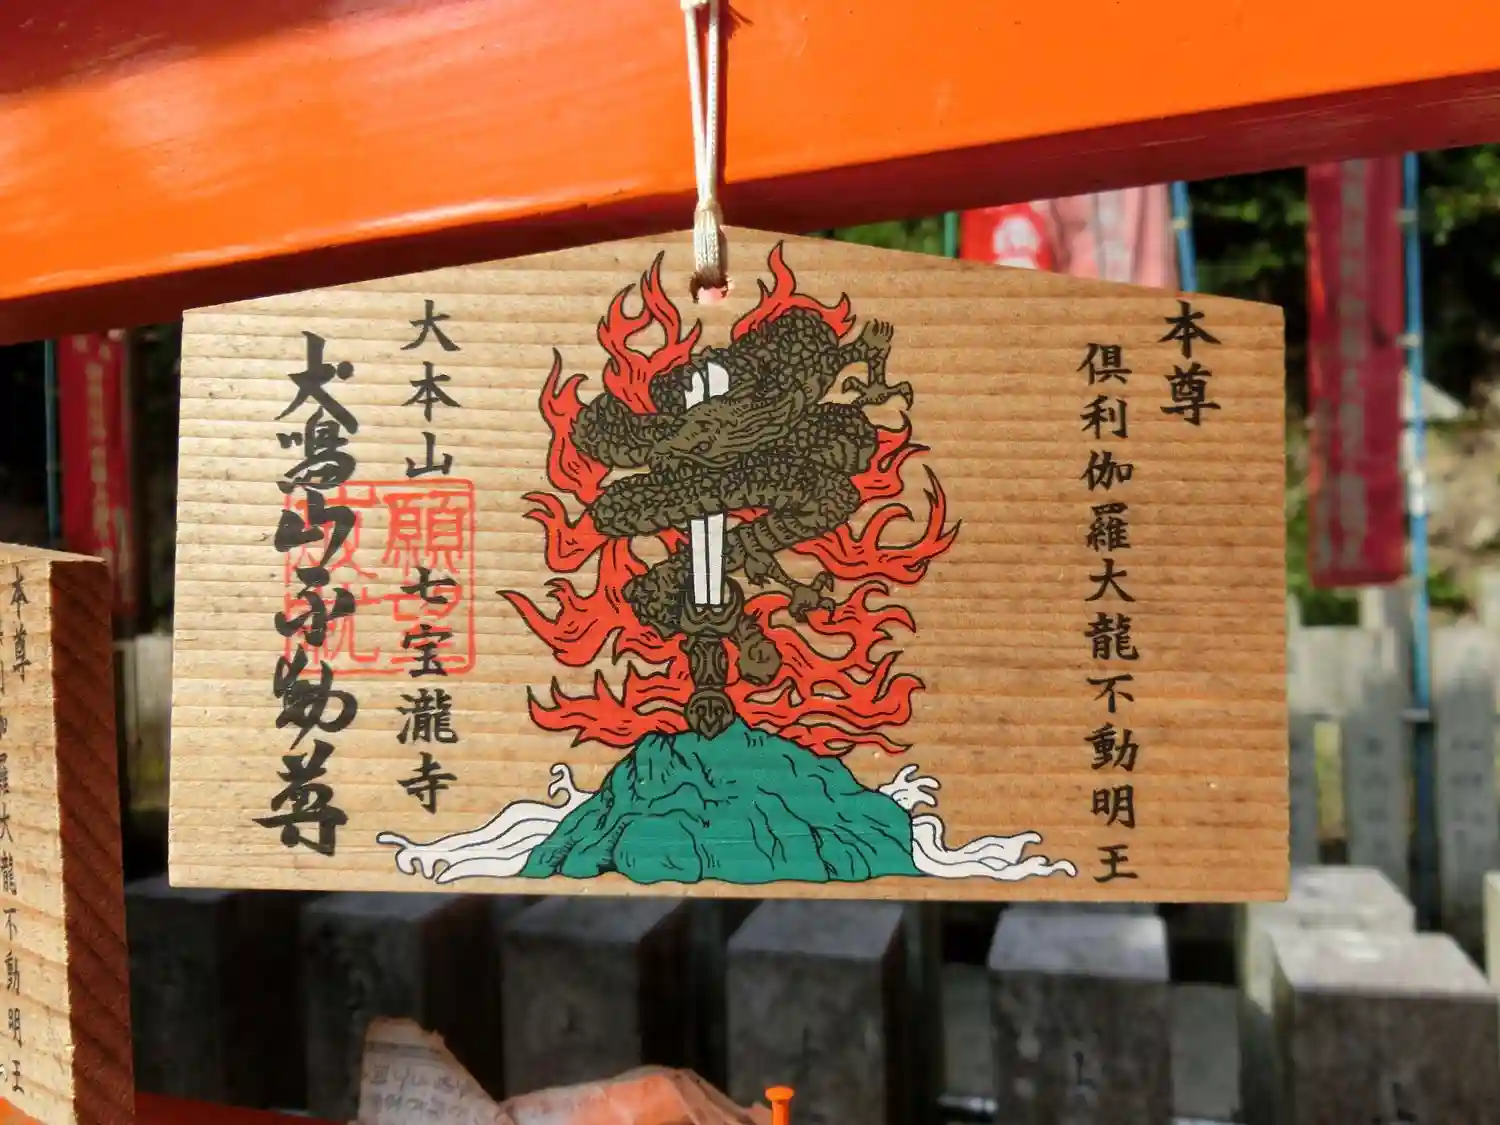 本尊
倶利伽羅大龍不動明王
大本山
七宝瀧寺
犬鳴山不動尊
願望
成就
本尊
大龍不動明王